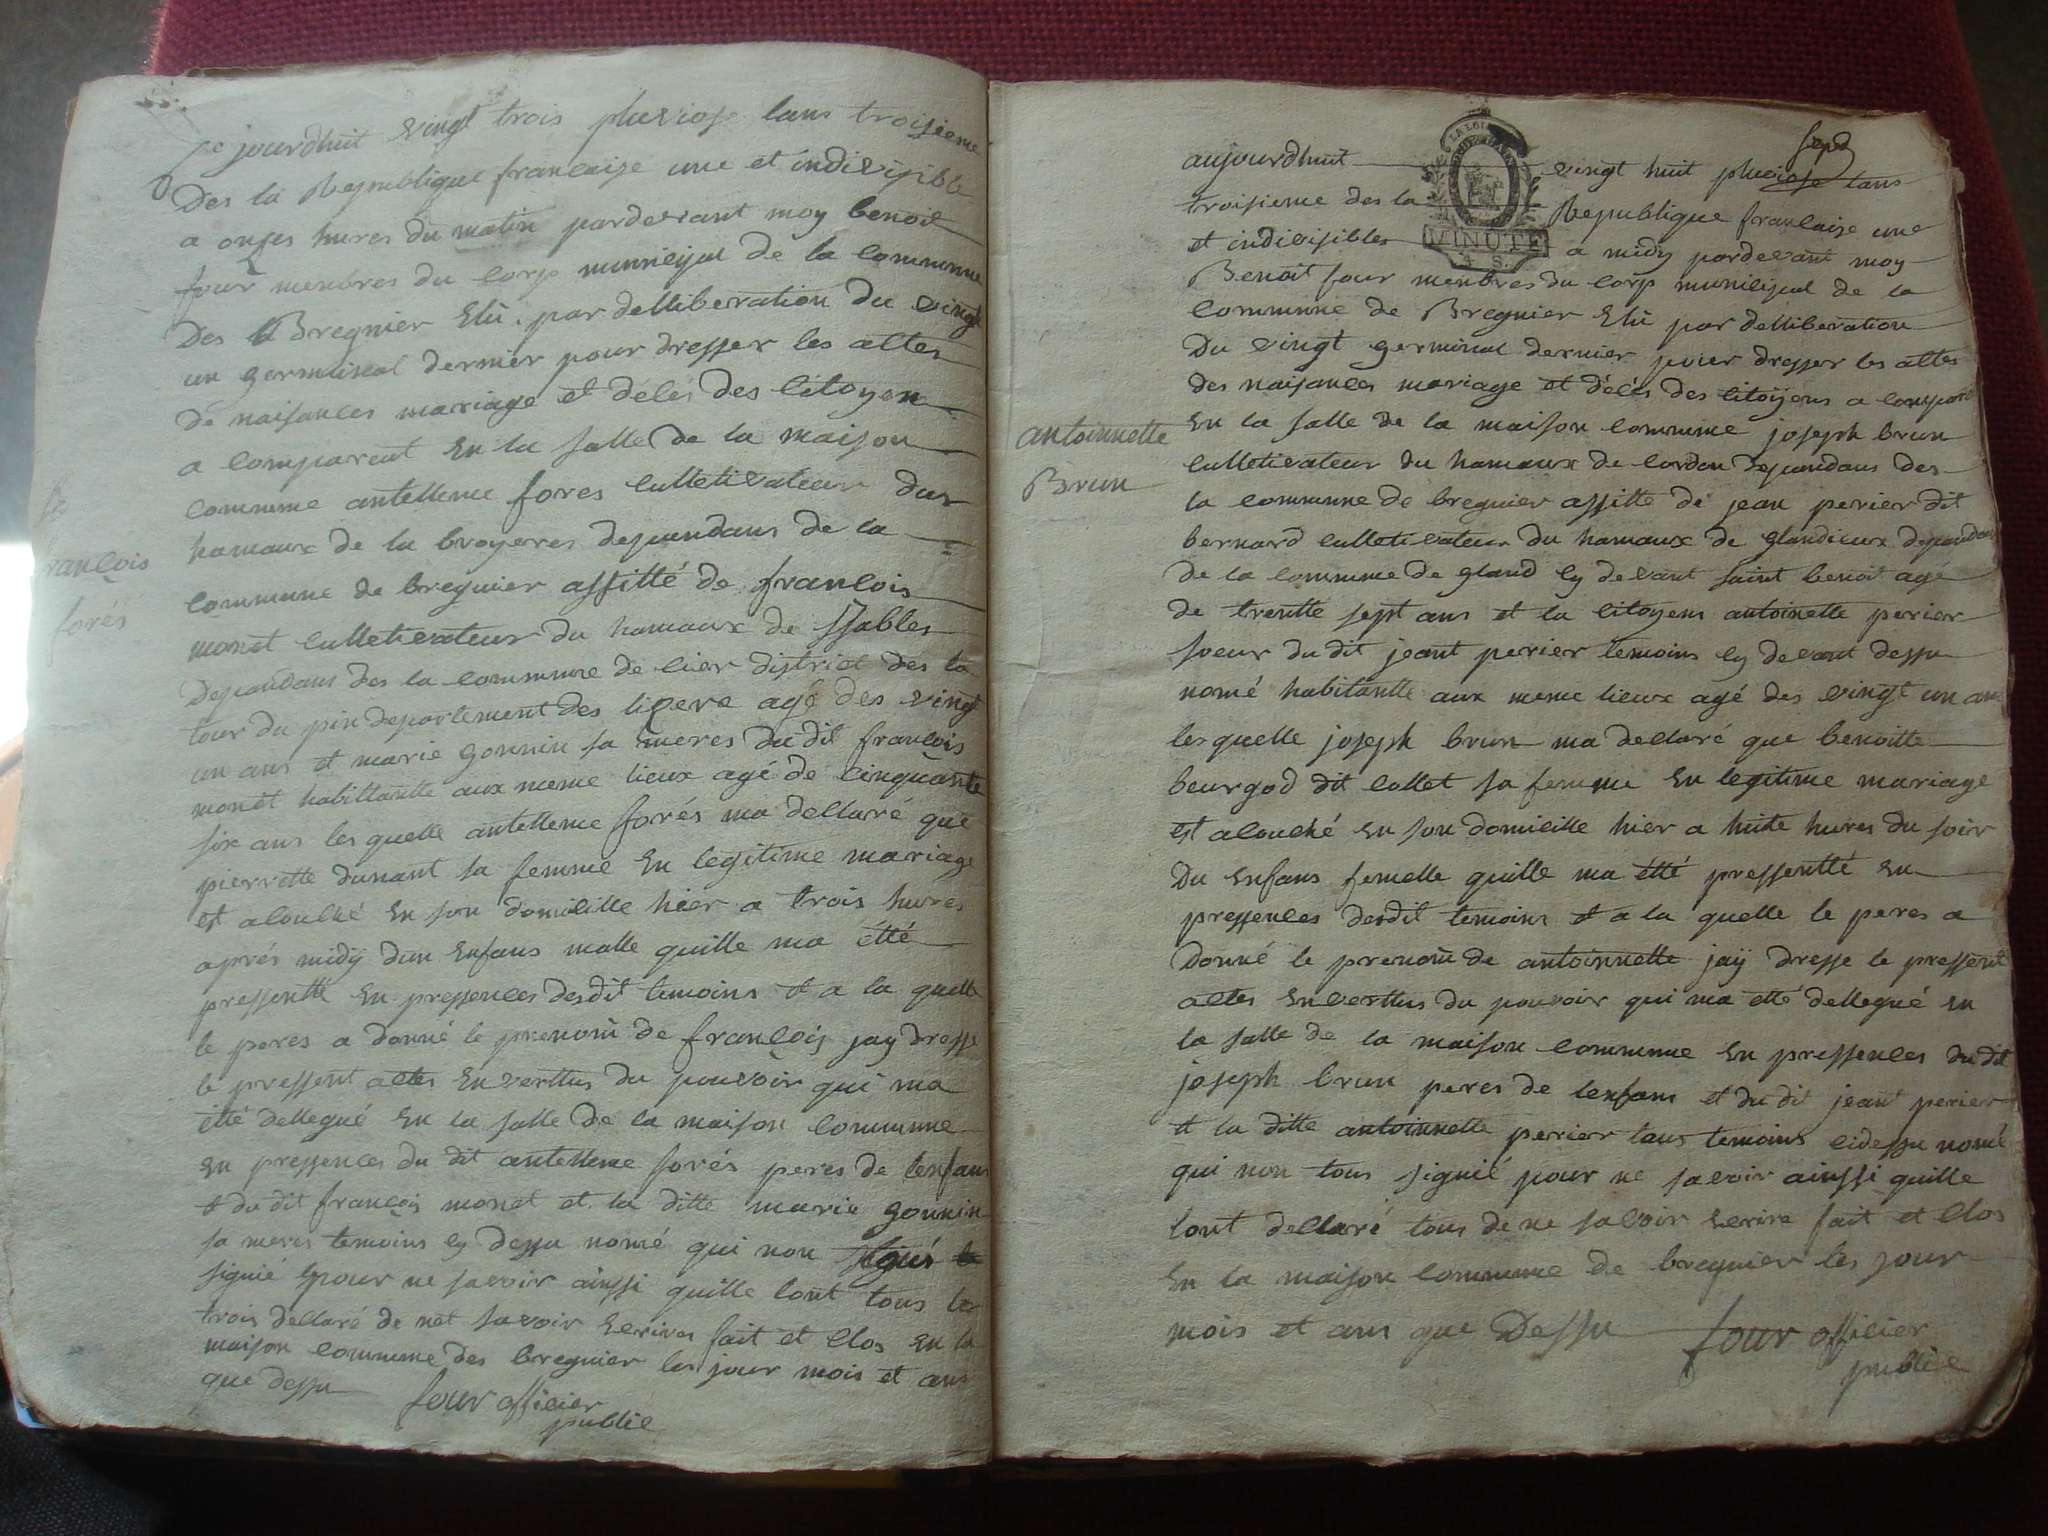 Ce jourdhuit vingt trois pluviose lans troisieme
Des la Republique francaise une et indivisible
a onses hures du matin pardevant moy benoit
four menbres du corp municipal de la commune
Des Bregnier Elù par delliberation du vingt
un germinal dernier pour dresser les attes
de naisances mariage et décés des citoyen
a comparent En la salle de la maison
commune antelleme fores culletivateur dur
hamaux de la broyeres dependans de la
commune de bregnier assitté de francois
monet culletivateur du hamaux de ssables
dependans des la commune de cier district des la
tour du pin departement des lisere agé des vingt
un ans et marie gonnin sa meres du dit francois
monet habittantte aux meme lieux agé de cinquante
six ans les quelle antelleme forés ma dellaré que
pierrette dunant sa femme En legitime mariage
est alouché En son domicille hier a trois hures
aprés midÿ dun Enfans malle quille ma étté
pressentté En pressences desdit temoins et a la quelle
le peres a donné le prenom de francois jay dresse
le pressent attes En verttus du pouvoir qui ma
étté dellegué En la salle de la maison commune
en pressences du dit antelleme forés peres de lenfans
et du dit francois monet et la ditte marie gonnin
sa meres temoins cy dessu nomé qui non
signié pour ne savoir ainssi quille lont tous les
trois dellaré de net savoir Ecrires fait et clos En la
maison commune des bregnier les jour mois et ans
que dessu four officier
publié
francois
forés
aujourdhuit vingt huit pluviose lans
troisieme des la Republique francaise une
et indivisibles a midy pardevant moy
LA LOI
MINUTE
Benoit four menbres du corp municipal de la
commune de Bregnier Elù par delliberation
Du vingt germinal dernier pour dresser les attes
des naisances mariage et décés des citoÿens a comparu
En la salle de la maison commune joseph brun
culletivateur du hamaux de cordon dependans des
la commune de bregnier assitte de jean perier dit
bernard culletivateur du hamaux de glandieux dependans
de la commune de gland cy devant saint benoit agé
de trentte sept ans et la citoyens antoinette perier
soeur du dit jeant perier temoins cy devant dessu
nomé habitantte aux meme lieux agé des vingt un ans
les quelle joseph brun ma dellaré que benoitte
beurgod dit collet sa femme En legitime mariage
est alouché en son domicille hier a huite hures du soir
Du Enfans femelle quille ma étté pressentté En
pressences desdit temoins et a la quelle le peres a
donné le prenom de antoinnette jaÿ dresse le pressent
attes En verttus du pouvoir qui ma étté dellegué en
la salle de la maison commune En pressences du dit
joseph brun peres de lenfans et du dit jeant perier
et la ditte antoinnette perier tous temoins cidessu nomé
qui non tous signié pour ne savoir ainssi quille
lont dellaré tous de ne savoir Ecrire fait et clos
En la maison commune de bregnier les jour
mois et ans que Dessu four officier
publice
antoinnette
Brun